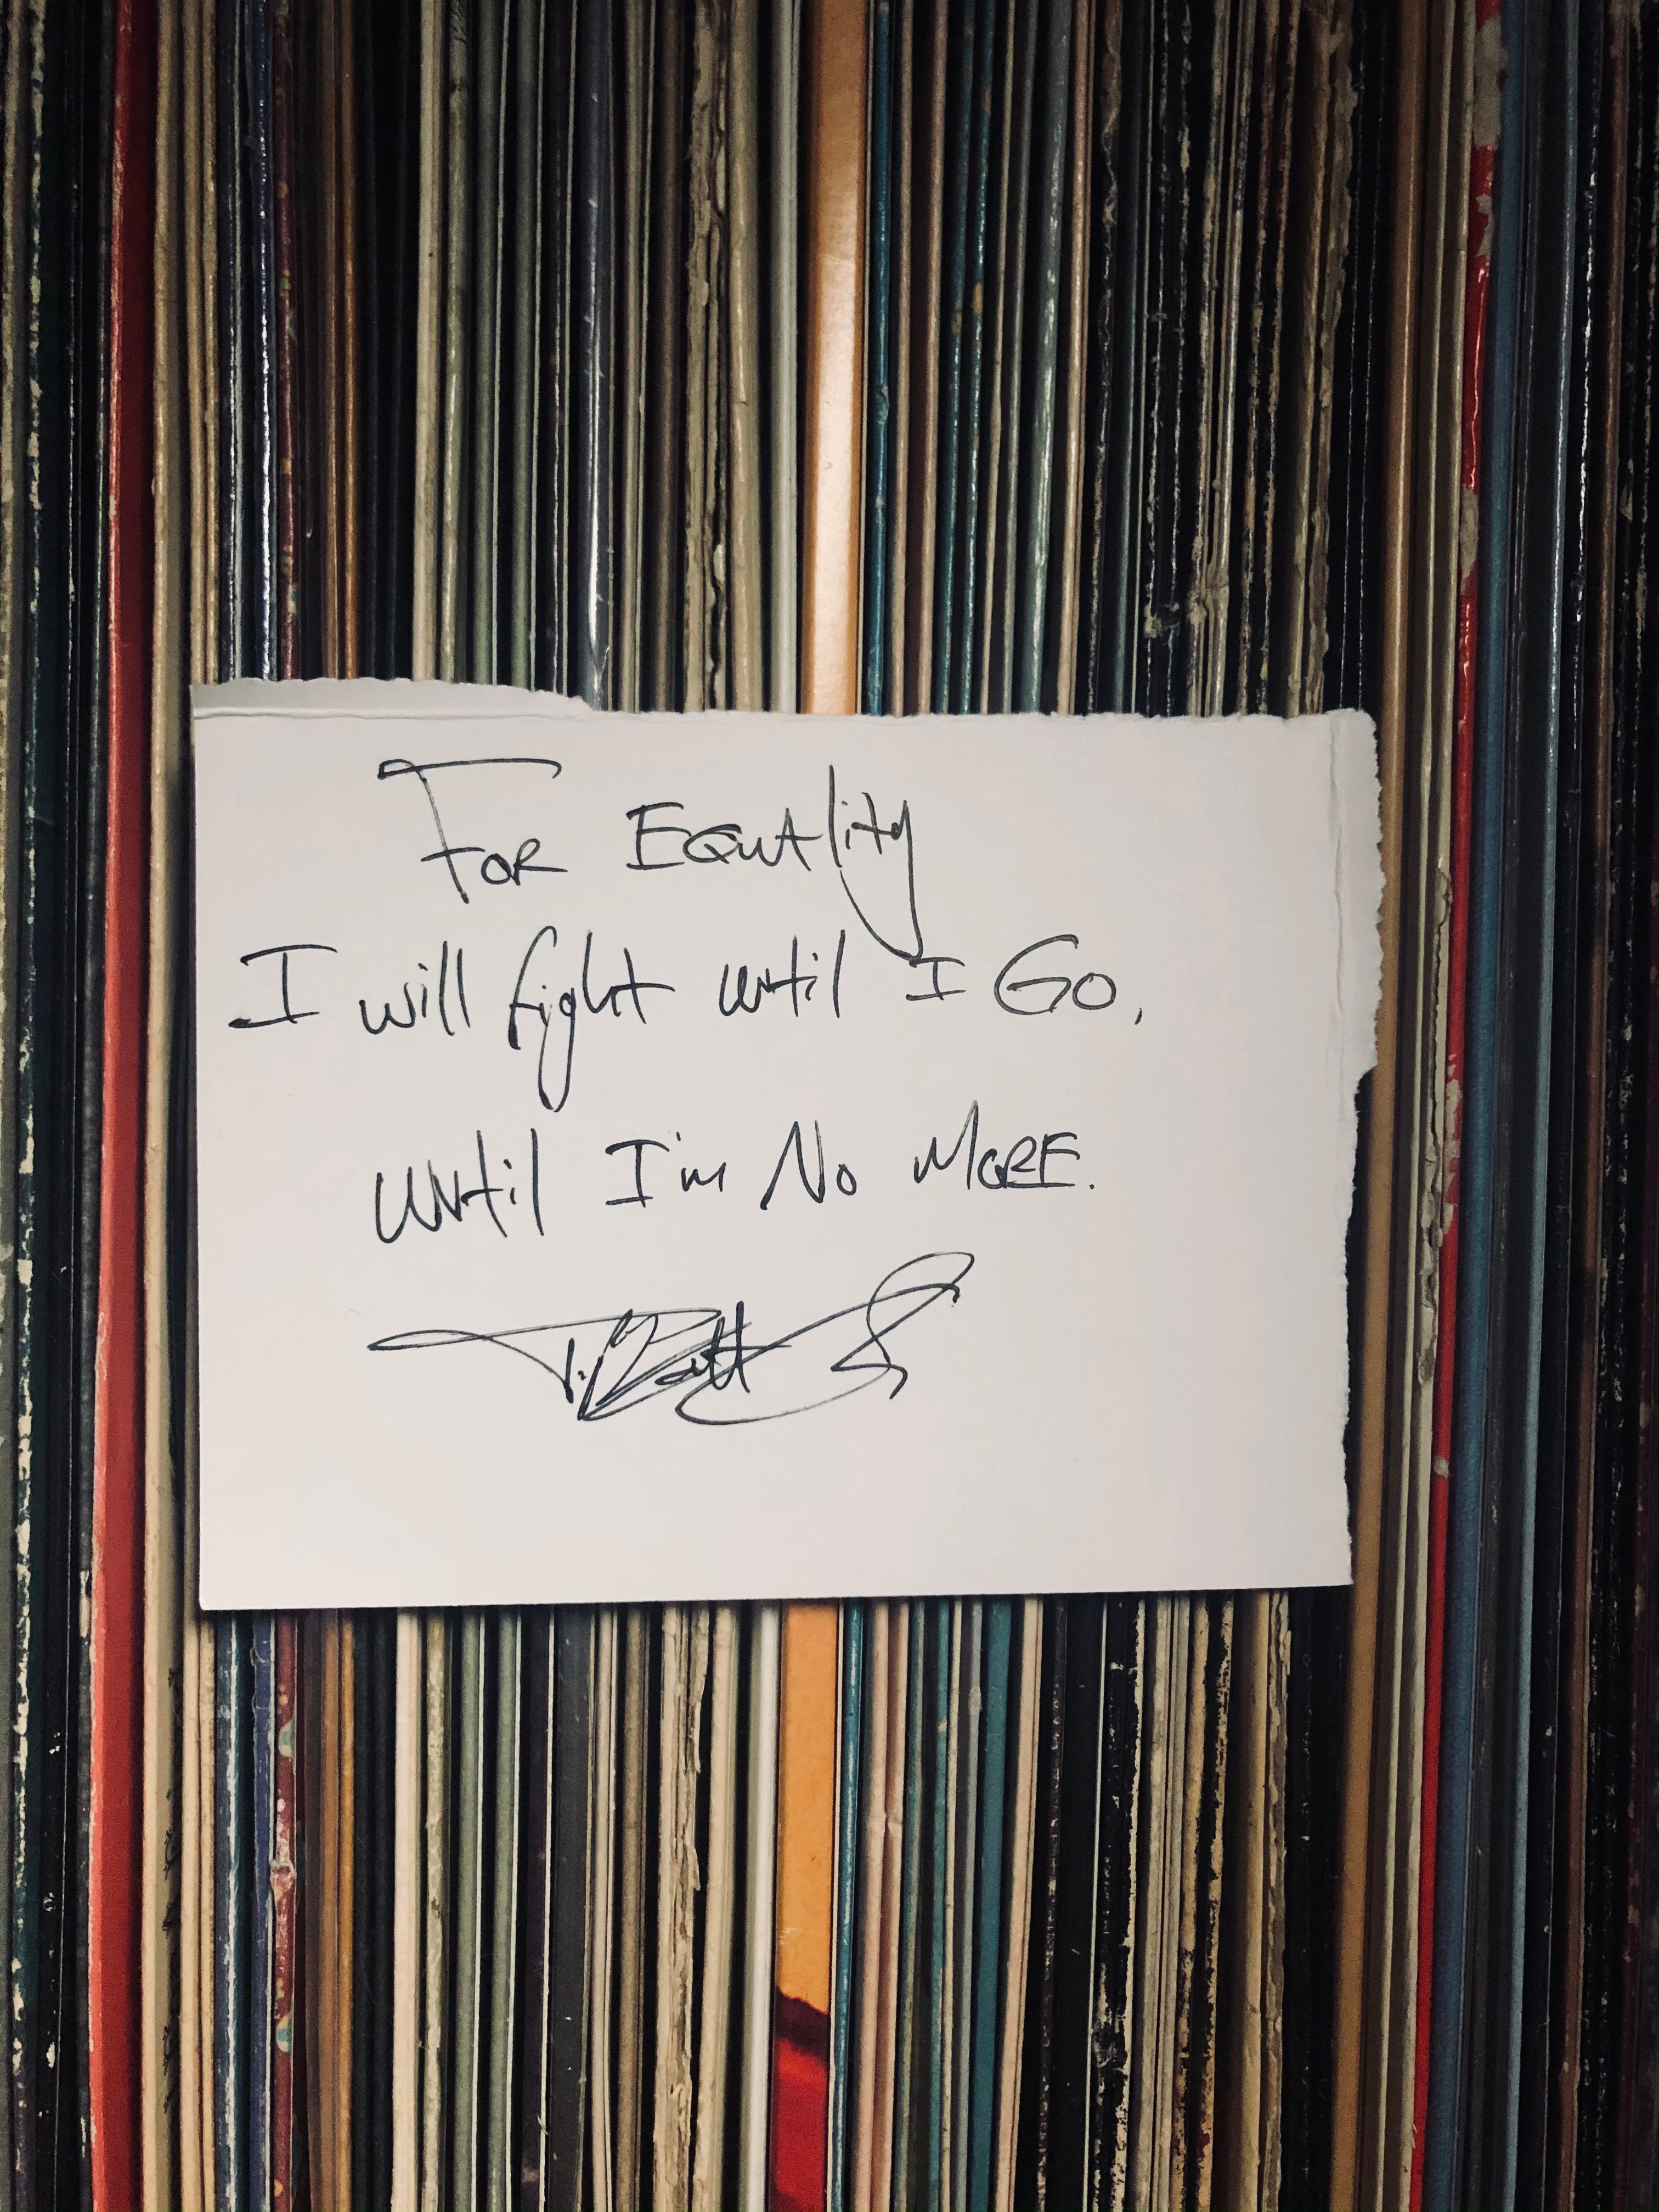 FOR EQuAlity
I will fight until I GO,
until I'm No MORE.